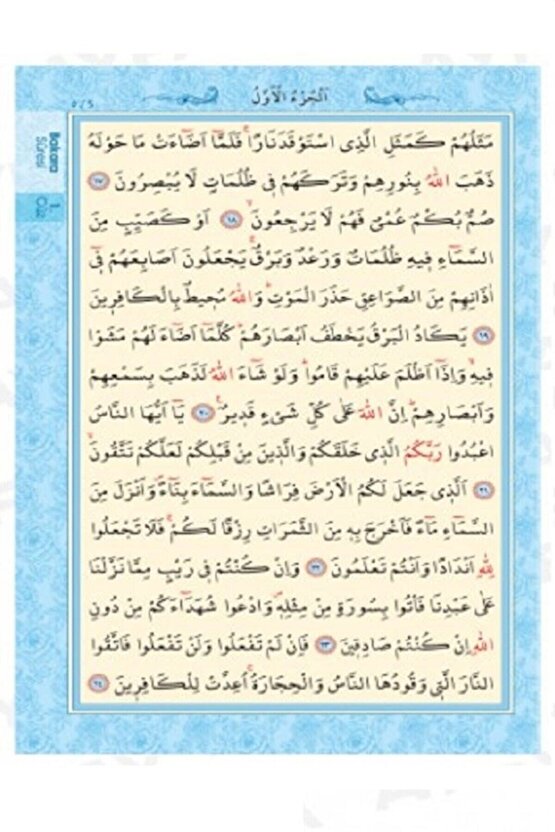 اَلْجُزْءُ الْاَوَّلُ
Bakara Sûresi
1. Cüz
مَثَلُهُمْ كَمَثَلِ الَّذِى اسْتَوْقَدَ نَارًاۚ فَلَمَّٓا اَضَٓاءَتْ مَا حَوْلَهُ
ذَهَبَ اللّٰهُ بِنُورِهِمْ وَتَرَكَهُمْ فِى ظُلُمَاتٍ لَا يُبْصِرُونَ ﴿١٧﴾
صُمٌّ بُكْمٌ عُمْىٌ فَهُمْ لَا يَرْجِعُونَۙ ﴿١٨﴾ اَوْ كَصَيِّبٍ مِنَ
السَّمَٓاءِ فِيهِ ظُلُمَاتٌ وَرَعْدٌ وَبَرْقٌۚ يَجْعَلُونَ اَصَابِعَهُمْ فِٓى
اٰذَانِهِمْ مِنَ الصَّوَاعِقِ حَذَرَ الْمَوْتِۜ وَاللّٰهُ مُحِيطٌ بِالْكَافِرِينَ
﴿١٩﴾ يَكَادُ الْبَرْقُ يَخْطَفُ اَبْصَارَهُمْۜ كُلَّمَٓا اَضَٓاءَ لَهُمْ مَشَوْا
فِيهِۙ وَاِذَٓا اَظْلَمَ عَلَيْهِمْ قَامُواۜ وَلَوْ شَٓاءَ اللّٰهُ لَذَهَبَ بِسَمْعِهِمْ
وَاَبْصَارِهِمْۜ اِنَّ اللّٰهَ عَلٰى كُلِّ شَىْءٍ قَدِيرٌ۟ ﴿٢٠﴾ يَٓا اَيُّهَا النَّاسُ
اعْبُدُوا رَبَّكُمُ الَّذِى خَلَقَكُمْ وَالَّذِينَ مِنْ قَبْلِكُمْ لَعَلَّكُمْ تَتَّقُونَۙ
﴿٢١﴾ اَلَّذِى جَعَلَ لَكُمُ الْاَرْضَ فِرَاشًا وَالسَّمَٓاءَ بِنَٓاءًۖ وَاَنْزَلَ مِنَ
السَّمَٓاءِ مَٓاءً فَاَخْرَجَ بِهِ مِنَ الثَّمَرَاتِ رِزْقًا لَكُمْۚ فَلَا تَجْعَلُوا
لِلّٰهِ اَنْدَادًا وَاَنْتُمْ تَعْلَمُونَ ﴿٢٢﴾ وَاِنْ كُنْتُمْ فِى رَيْبٍ مِمَّا نَزَّلْنَا
عَلٰى عَبْدِنَا فَأْتُوا بِسُورَةٍ مِنْ مِثْلِهِۖ وَادْعُوا شُهَدَٓاءَكُمْ مِنْ دُونِ
اللّٰهِ اِنْ كُنْتُمْ صَادِقِينَ ﴿٢٣﴾ فَاِنْ لَمْ تَفْعَلُوا وَلَنْ تَفْعَلُوا فَاتَّقُوا
النَّارَ الَّتِى وَقُودُهَا النَّاسُ وَالْحِجَارَةُۚ اُعِدَّتْ لِلْكَافِرِينَ ﴿٢٤﴾